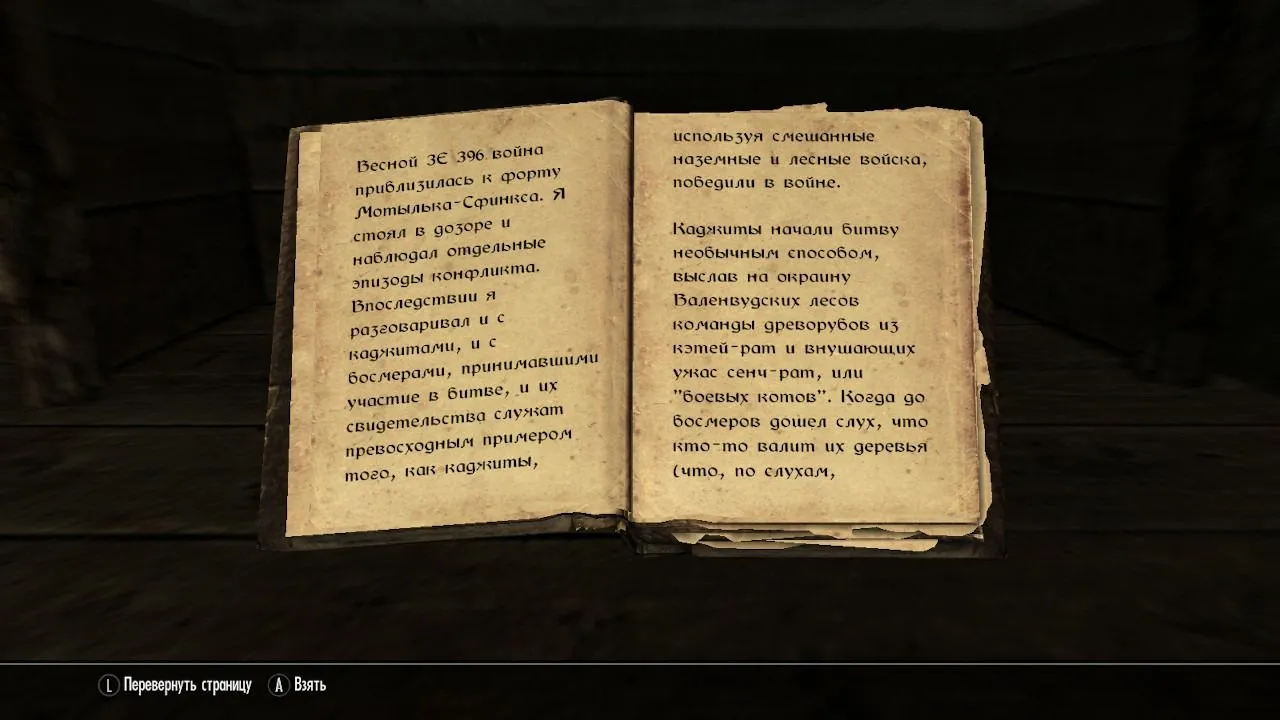 Весной 3Е 396 война
приблизилась к форту
Мотылька-Сфинкса. Я
стоял в дозоре и
наблюдал отдельные
эпизоды конфликта.
Впоследствии я
разговаривал и с
каджитами, и с
босмерами, принимавшими
участие в битве, и их
свидетельства служат
превосходным примером
того, как каджиты,
используя смешанные
наземные и лесные войска,
победили в войне.
Каджиты начали битву
необычным способом,
выслав на окраину
Валенвудских лесов
команды древорубов из
кэтей-рат и внушающих
ужас сенч-рат, или
"боевых котов". Когда до
босмеров дошел слух, что
кто-то валит их деревья
(что, по слухам,
L Перевернуть страницу A Взять